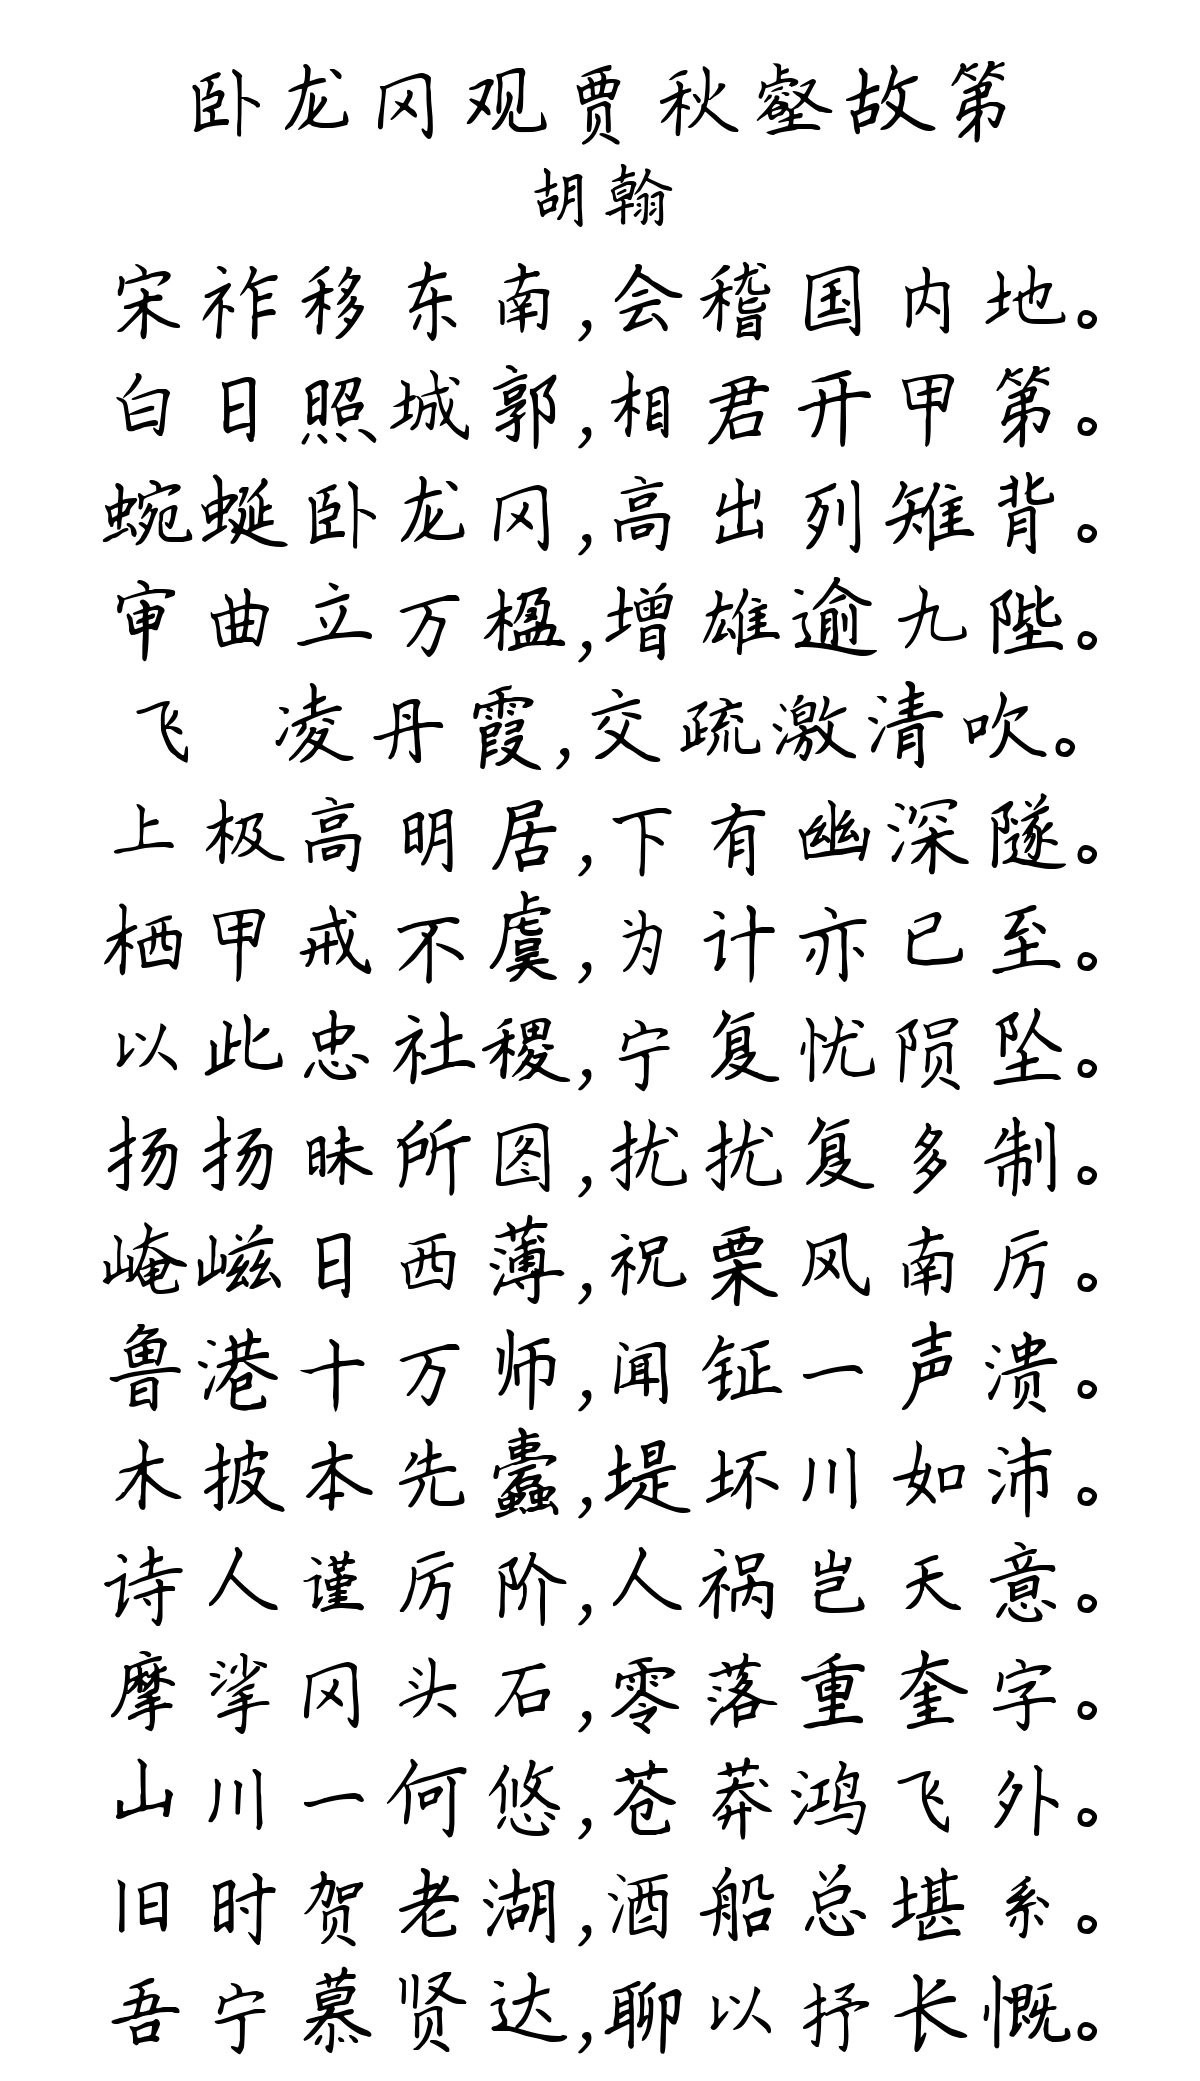 卧龙冈观贾秋壑故第
胡翰
宋祚移东南,会稽国内地。
白日照城郭,相君开甲第。
蜿蜒卧龙冈,高出列雉背。
审曲立万楹,增雄逾九陛。
飞 凌丹霞,交疏激清吹。
上极高明居,下有幽深隧。
栖甲戒不虞,为计亦已至。
以此忠社稷,宁复忧陨坠。
扬扬昧所图,扰扰复多制。
崦嵫日西薄,祝栗风南厉。
鲁港十万师,闻钲一声溃。
木披本先蠹,堤坏川如沛。
诗人谨厉阶,人祸岂天意。
摩挲冈头石,零落重奎字。
山川一何悠,苍莽鸿飞外。
旧时贺老湖,酒船总堪系。
吾宁慕贤达,聊以抒长慨。